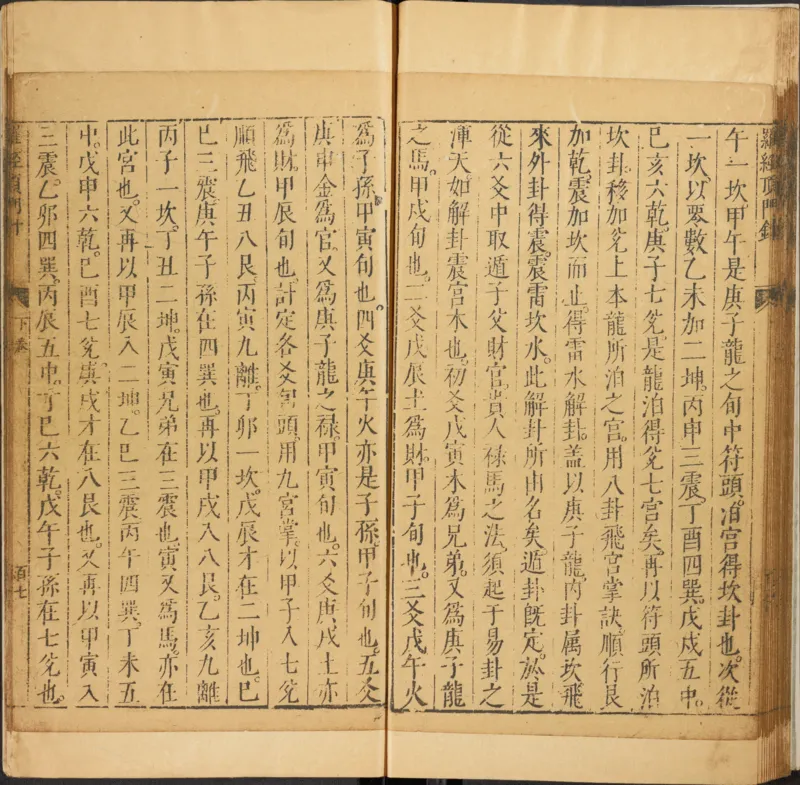 羅經頂門針
午一坎甲午是庚子龍之旬中符頭泊宮得坎卦也次從
一坎以零數乙未加二坤丙申三震丁酉四巽戊戍五中
巳亥六乾庚子七兊是龍泊得兊七宮矣再以符頭所泊
坎卦移加兊上本龍所泊之宮用八卦飛宮掌訣順行艮
加乾震加坎而止得雷水解卦盖以庚子龍內卦属坎飛
來外卦得震震雷坎水此解卦所由名矣遁卦既定於是
從六爻中取遁子父財官貴人祿馬之法須起于易卦之
渾天如解卦震宮木也初爻戊寅木爲兄弟又爲庚子龍
之馬甲戍旬也二爻戊辰土爲財甲子旬也三爻戊午火
爲子孫甲寅旬也四爻庚午火亦是子孫甲子旬也五爻
庚申金爲官又爲庚子龍之祿甲寅旬也六爻庚戍土亦
爲財甲辰旬也計定各爻旬頭用九宮掌以甲子入七兊
順飛乙丑八艮丙寅九離丁卯一坎戊辰才在二坤也巳
巳三震庚午子孫在四巽也再以甲戍入八艮乙亥九離
丙子一坎丁丑二坤戊寅兄弟在三震也寅又爲馬亦在
此宮也又再以甲辰入二坤乙巳三震丙午四巽丁未五
中戊申六乾巳酉七兊庚戍才在八艮也又再以甲寅入
三震乙卯四巽丙辰五中丁巳六乾戊午子孫在七兊也
羅經頂門針 下卷 百七